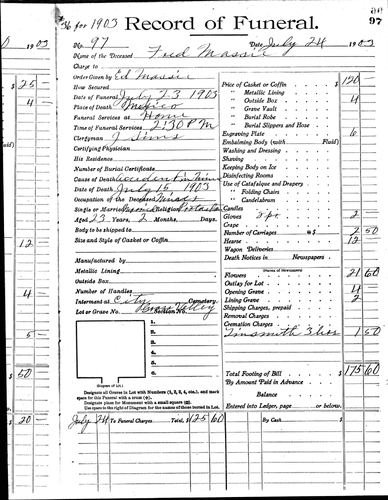 36 for 1903 Record of Funeral. 97
No. 97 Date July 24 1903
Name of the Deceased Fred Massie
Charge to
Order Given by Ed Massie
How Secured
Date of Funeral July 23 1903
Place of Death Mexico
Funeral Services at Home
Time of Funeral Services 2:30 PM
Clergyman J Sims
Certifying Physician
His Residence
Number of Burial Certificate
Cause of Death Accident in Mine
Date of Death July 15 1903
Occupation of the Deceased Miner
Single or Married Religion
Aged 23 Years, 2 Months, Days.
Body to be shipped to
Size and Style of Casket or Coffin
Manufactured by
Metallic Lining
Outside Box
Number of Handles
Interment at City Cemetery.
Lot or Grave No. Section No. Grass Valley
1.
2.
3.
4.
5.
6.
(Diagram of Lot.)
Designate all Graves in Lot with Numbers (1, 2, 3, 4, etc.), and mark
space for this Funeral with a cross (+).
Designate place for Monument with a small square (□).
Use space to the right of Diagram for the names of those buried in Lot.
July 24 To Funeral Charges Total, $ 125 60
Price of Casket or Coffin $ 120
" Metallic Lining
" Outside Box 4
" Grave Vault
" Burial Robe
" Burial Slippers and Hose
Engraving Plate
Embalming Body (with Fluid)
Washing and Dressing
Shaving
Keeping Body on Ice
Disinfecting Rooms
Use of Catafalque and Drapery
" Folding Chairs
" Candelabrum
Candles
Gloves 2
Crape
Number of Carriages @ $ 2 50
Hearse 12
Wagon Deliveries
Death Notices in Newspapers
(Names of Newspapers)
Flowers 21 60
Outlay for Lot
Opening Grave 4
Lining Grave 2
Shipping Charges, prepaid
Removal Charges
Cremation Charges
Tinsmith 1 50
Total Footing of Bill $ 175 60
By Amount Paid in Advance
Balance
Entered into Ledger, page or below.
By Cash $
0 1903
$ 25
4
12
4
5
$ 50
$ 20